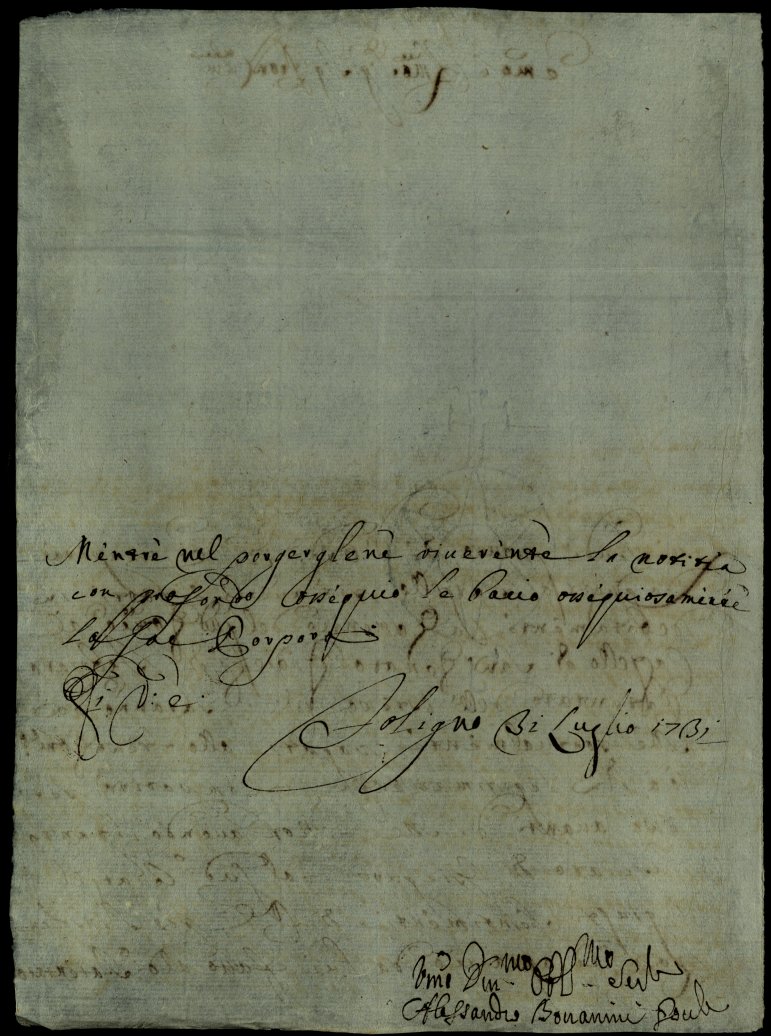 Mentre nel porgerglene riverente la notitia
con profondo ossequio le bacio ossequiosamente
la Porpora
Di V: E:
Foligno 31 Luglio 1731
Umo Dmo Obbmo Serv
Alessandro Bonannini